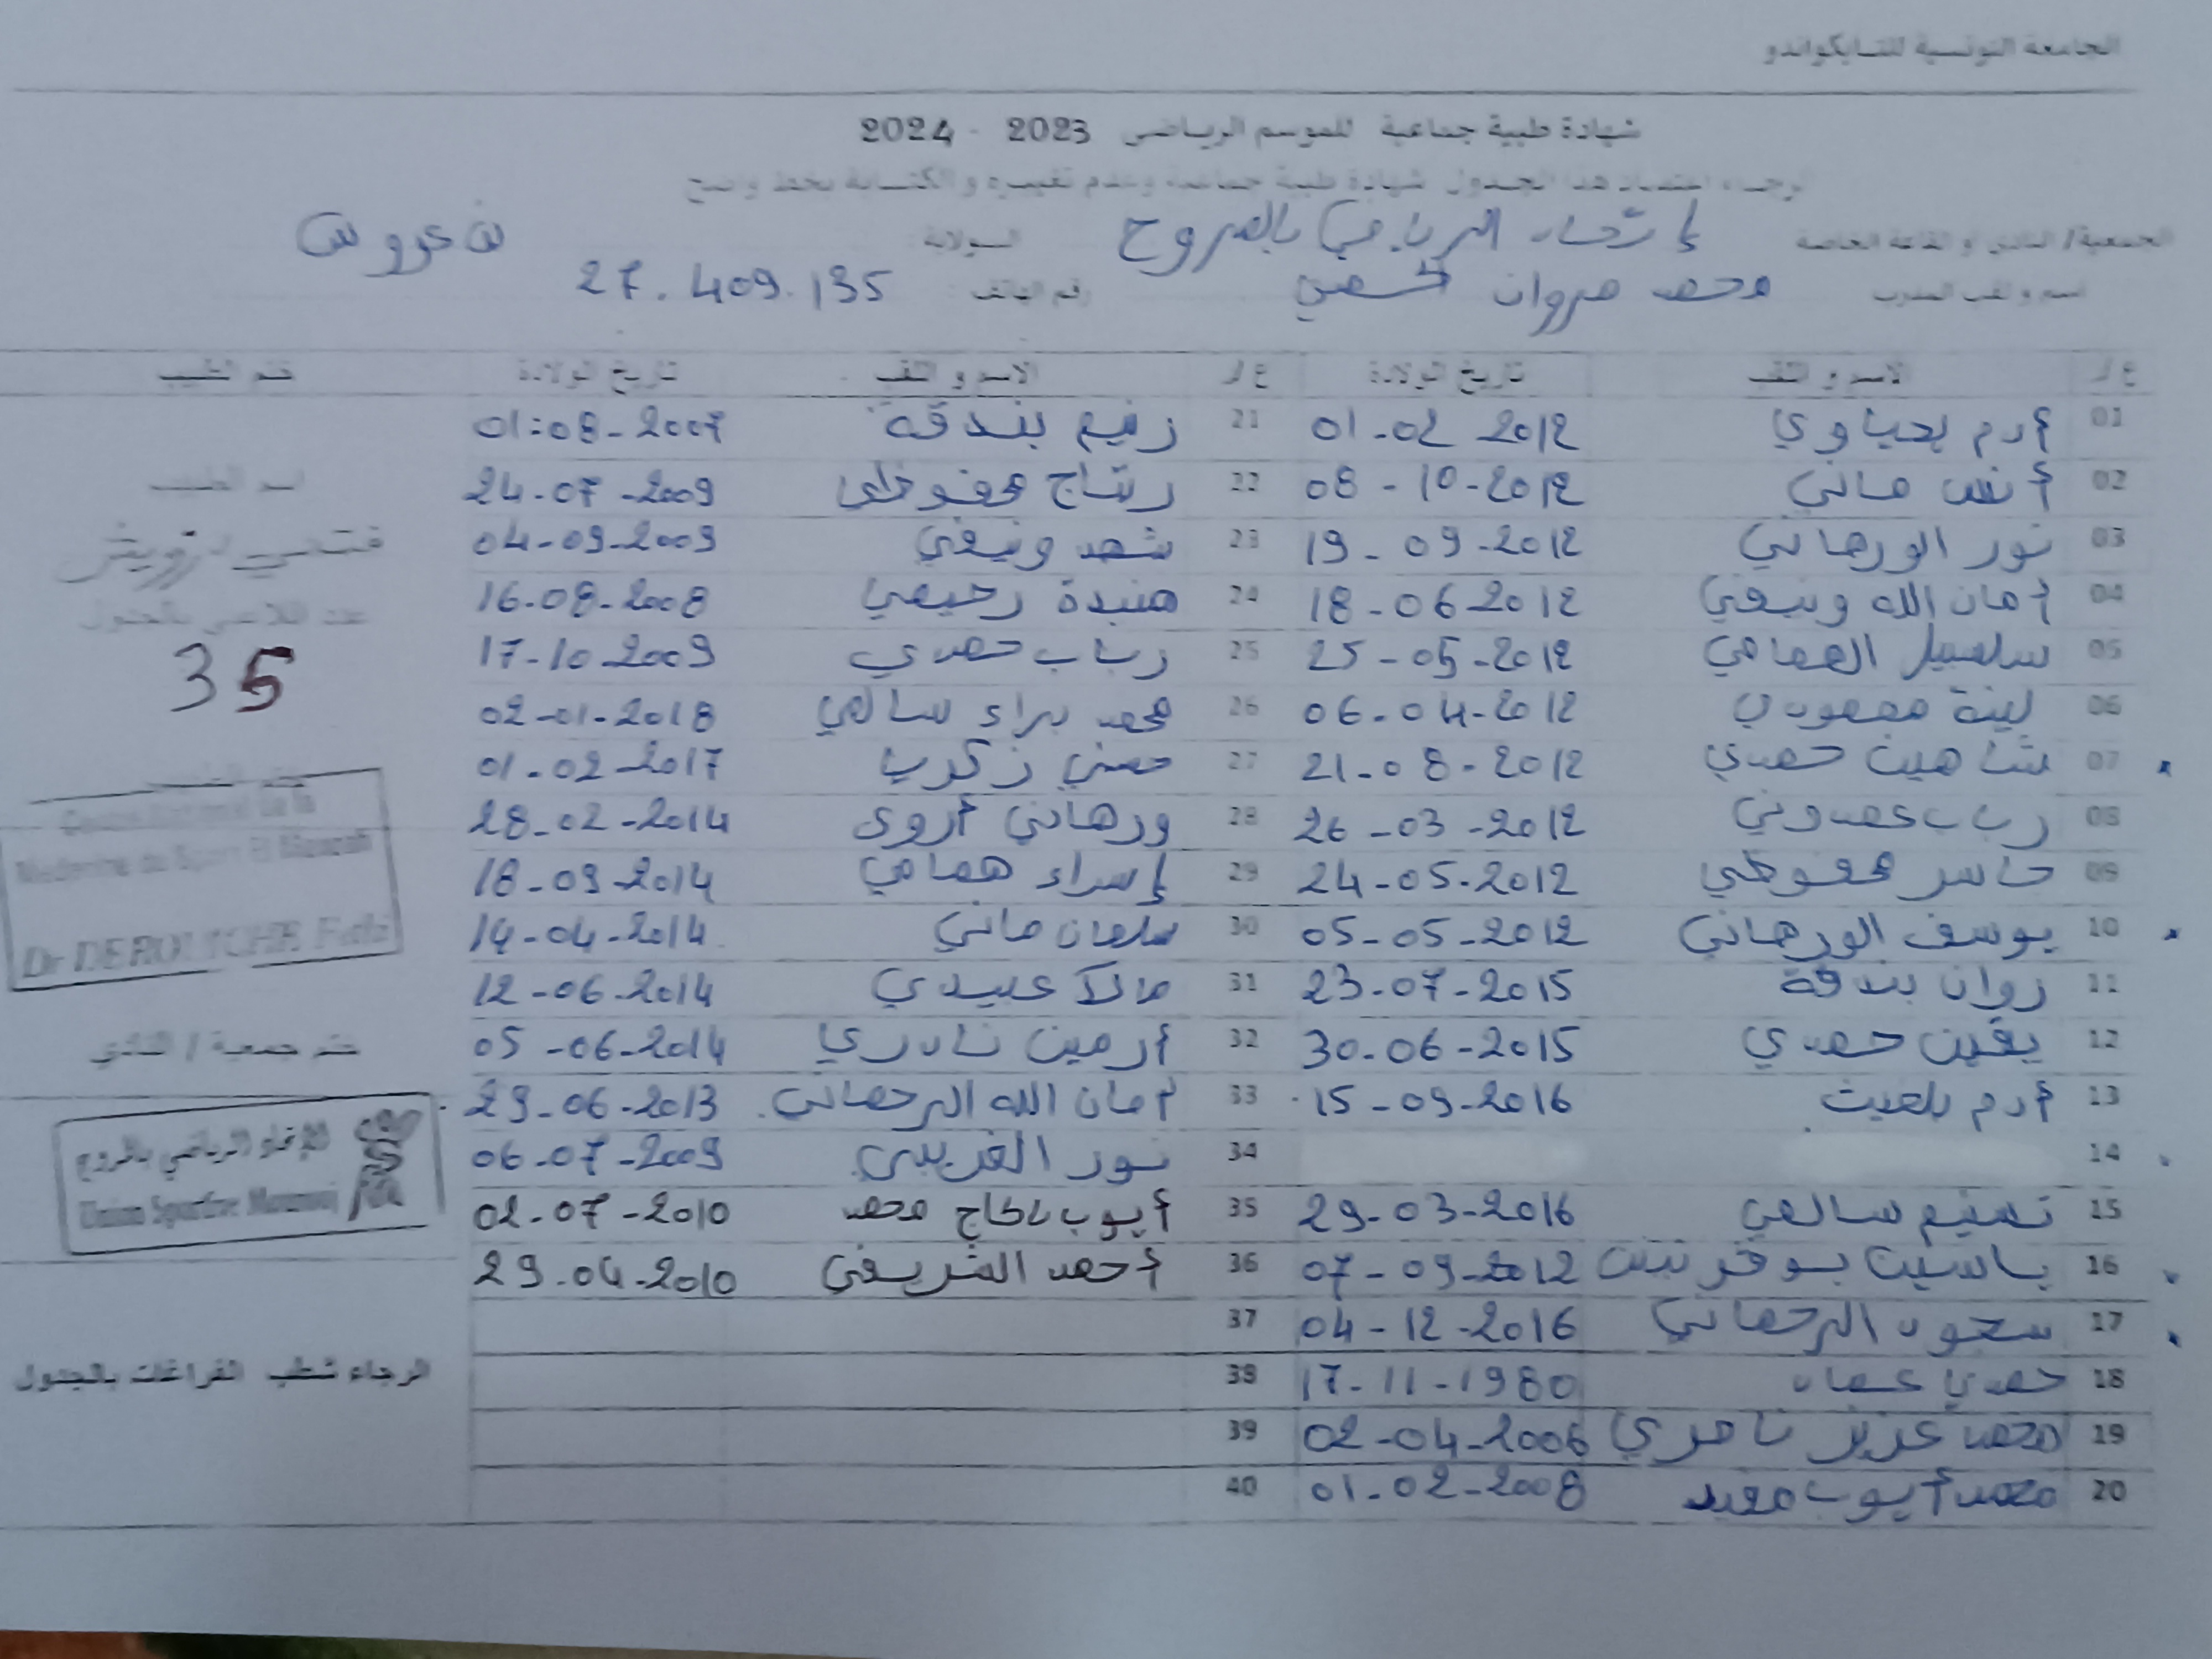 الجامعة التونسية للتايكواندو
شهادة طبية جماعية للموسم الرياضي 2023 - 2024
الرجاء اعتماد هذا الجدول شهادة طبية جماعية وعدم تغييره و الكتابة بخط واضح
الجمعية/ النادي و القاعة الخاصة إتحاد الرياضي بالمروج الولاية بن عروس
اسم و لقب المدرب محمد مروان رقم الهاتف 27.409.135
ع/ر الاسم و اللقب تاريخ الولادة ع/ر الاسم و اللقب تاريخ الولادة ختم الطبيب
01 أدم يحياوي 01-02 2012 21 رنيم بندقة 01-08-2007
02 أنس ماني 08-10-2012 22 رتاج محفوظي 24-07-2009
03 نور الورهاني 19-09-2012 23 شهد ونيفي 04-09-2009
04 أمان الله ونيفي 18-06 2012 24 هنيدة رحيمي 16-08-2008
05 سلسبيل الهمامي 25-05-2012 25 رباب حمدي 17-10-2009
06 لينة 06-04-2012 26 محمد براء سالمي 02-01-2018
07 شاهين حمدي 21-08-2012 27 زكريا 01-02-2017
08 رباب عمدوني 26-03-2012 28 ورهاني أروى 28-02-2014
09 ياسر محفوظي 24-05-2012 29 إسراء همامي 18-09-2014
10 يوسف الورهاني 05-05-2012 30 سلمان ماني 14-04-2014
11 روان بندقة 23-07-2015 31 مالك عبيدي 12-06-2014
12 يقين حمدي 30-06-2015 32 أرمين نادري 05-06-2014
13 أدم بلغيث 15-09-2016 33 أمان الله الرحماني 29-06-2013
14 34 نور الغريبي 06-07-2009
15 تسنيم سالمي 29-03-2016 35 أيوب بالحاج محمد 02-07-2010
16 ياسين 07-09-2012 36 أحمد الشريفي 29-04-2010
17 سجود الرحماني 04-12-2016 37
18 حمدي عماد 17-11-1980 38
19 محمد عزيز نامري 02-04-2006 39
20 محمد أيوب مفيد 01-02-2008 40
اسم الطبيب
فتحي درويش
عدد اللاعبين بالجدول
35
ختم الطبيب
Centre National de la
Médecine du Sport El Menzah
Dr DEROUICHE Fethi
ختم جمعية / النادي
الإتحاد الرياضي بالمروج
Union Sportive Mourouj
الرجاء شطب الفراغات بالجدول